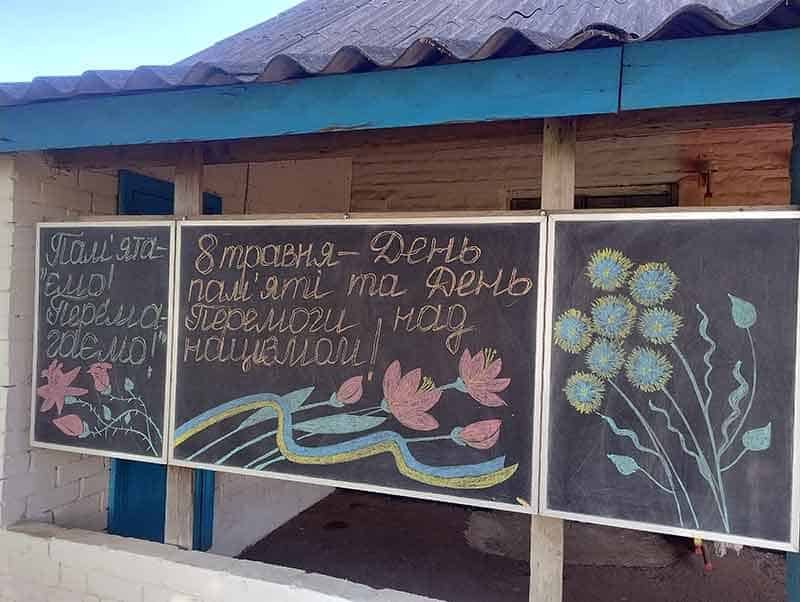 Пам'ята-
"ємо!
Перема-
гаємо!"
8 травня – День
пам'яті та День
Перемоги над
нацизмом!